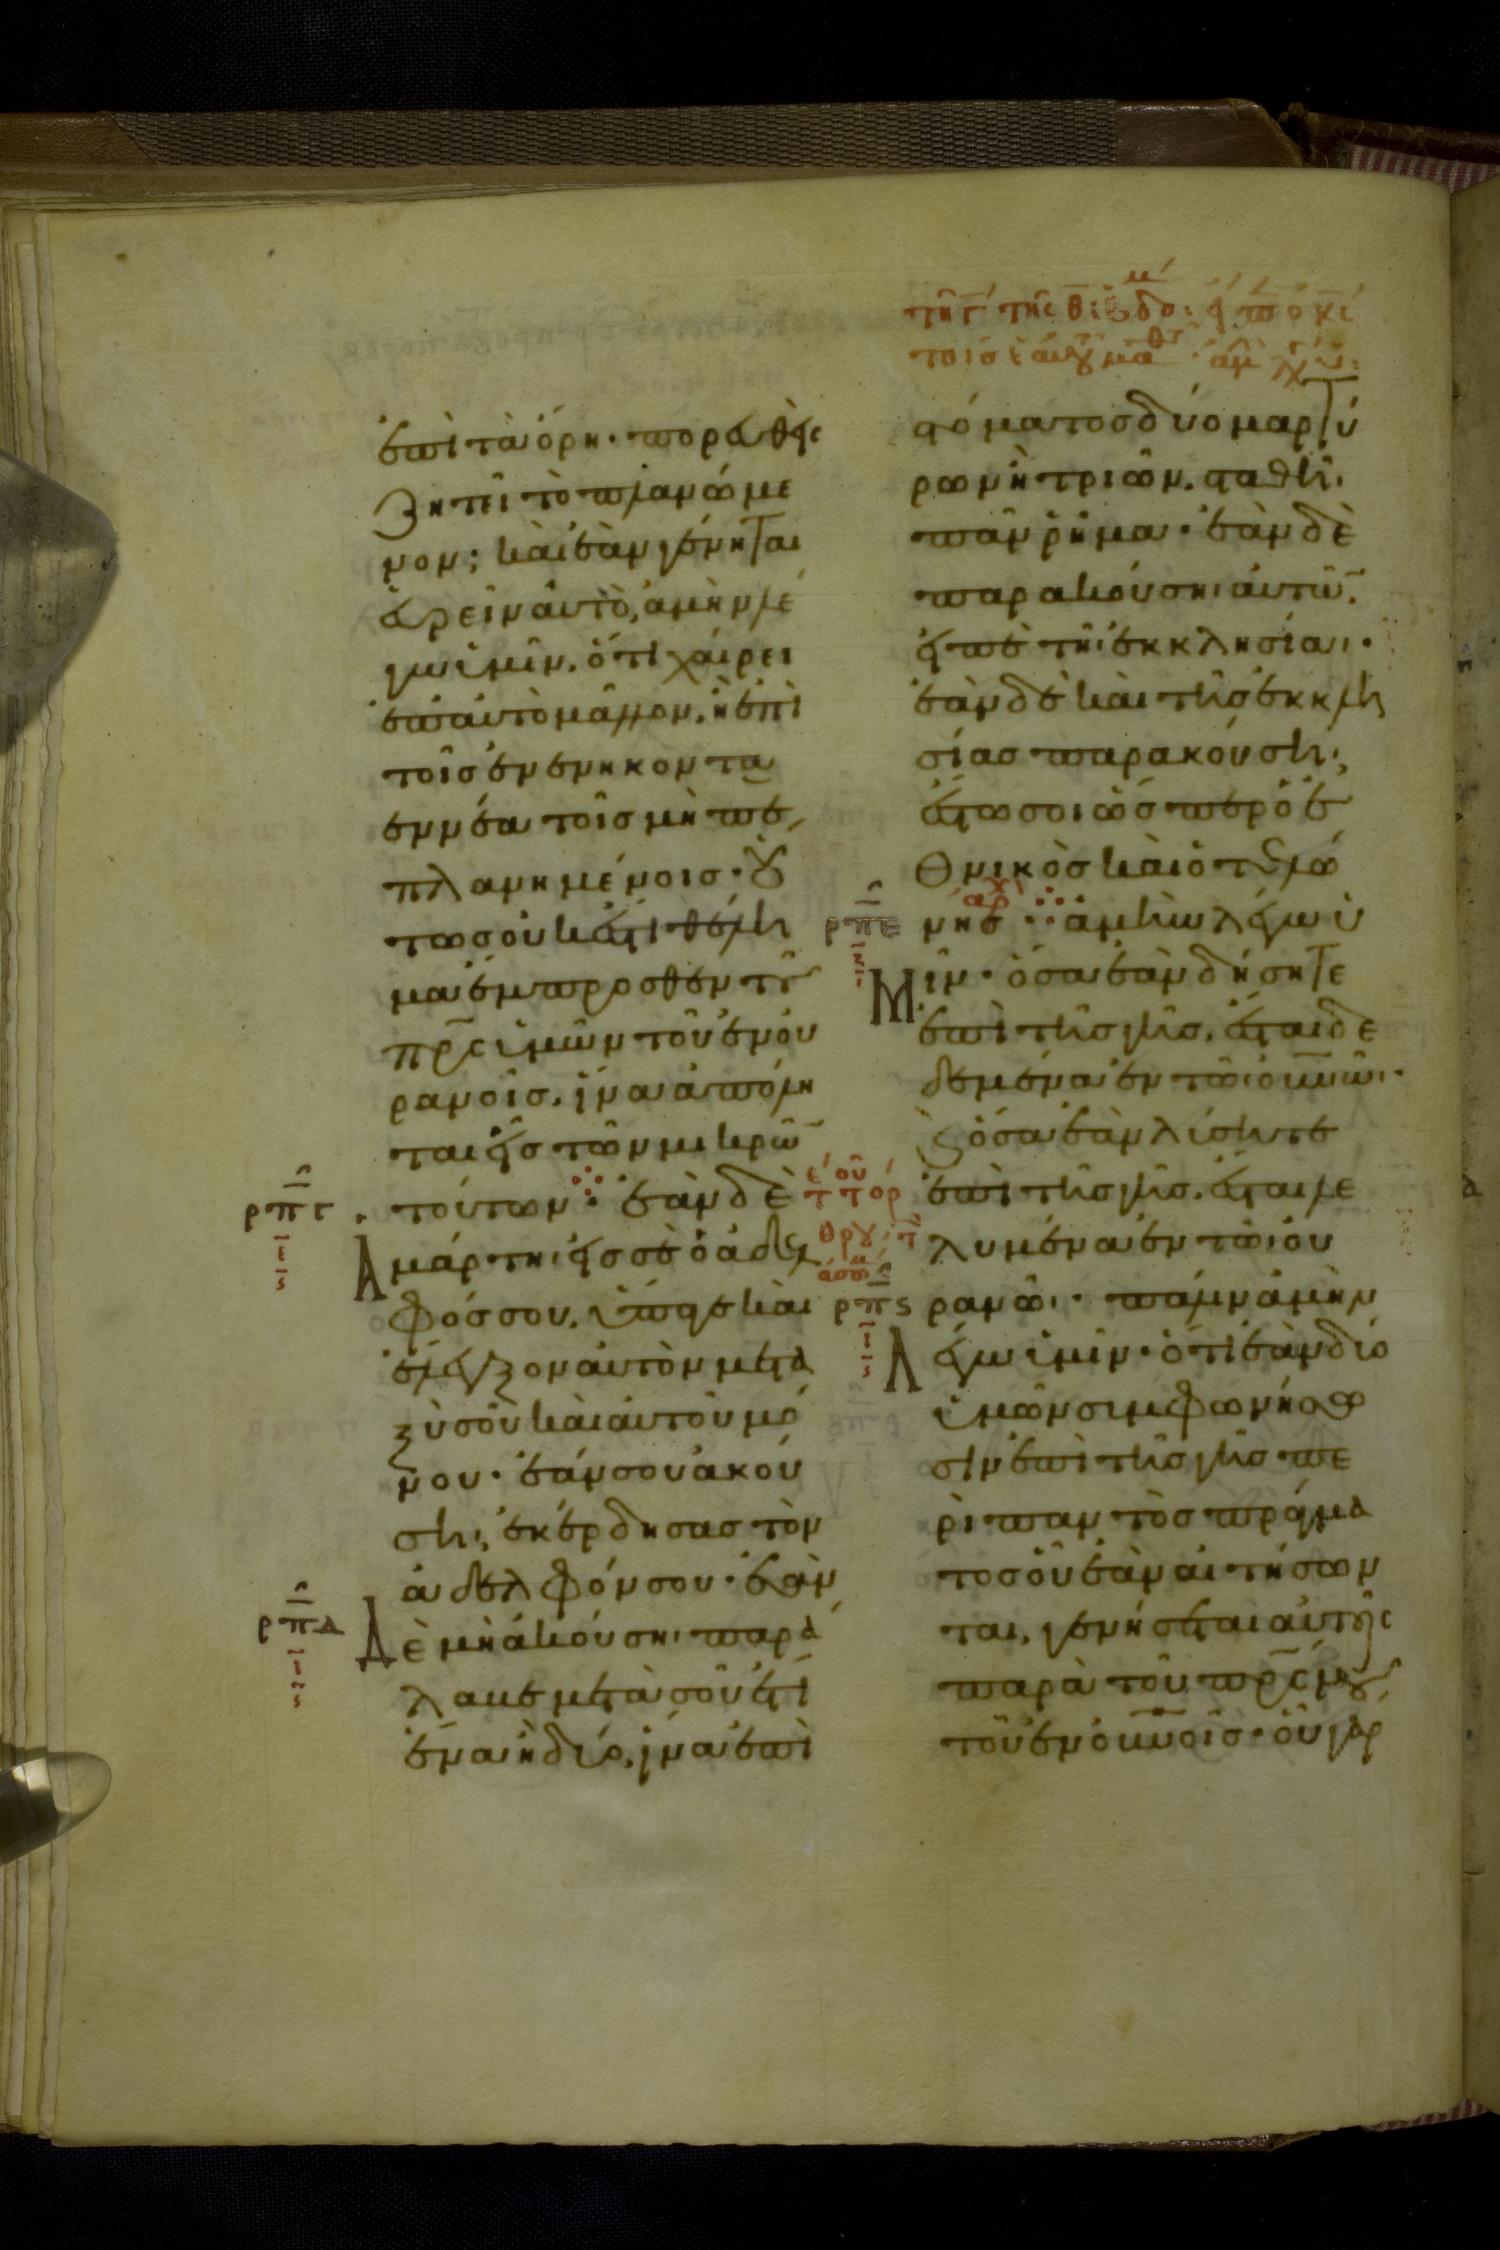 ἐπὶ τὰ ὄρη· πορευθεὶς
ζητεῖ τὸ πλανώμε
νον; καὶ ἐὰν γένηται
εὑρεῖν αὐτὸ, ἀμὴν λέ
γω ὑμῖν, ὅτι χαίρει
ἐπ' αὐτὸ μᾶλλον, ἢ ἐπὶ
τοῖς ἐνενηκονταε
ννέα τοῖς μὴ πε
πλανημένοις· οὕ
τως οὐκ ἔστι θέλη
μα ἔμπροσθεν τοῦ
πρς ὑμῶν τοῦ ἐν οὐ
ρανοῖς, ἵνα ἀπόλη
ται εἷς τῶν μικρῶ
τούτων· ἐὰν δὲ
ρπγ
ἁμάρτηι εἰς σὲ ὁ ἀδελ
φός σου, ὕπαγε καὶ
ἔλεγξον αὐτὸν μετα
ξὺ σοῦ καὶ αὐτοῦ μό
νου· ἐάν σου ἀκού
σηι, ἐκέρδησας τὸν
ἀδελφόν σου· ἐὰν
ρπδ
δὲ μὴ ἀκούσηι παρά
λαβε μετὰ σοῦ ἔτι
ἕνα ἢ δύο, ἵνα ἐπὶ
στόματος δύο μαρτύ
ρων ἢ τριῶν, σταθῆι
πᾶν ῥῆμα· ἐὰν δὲ
παρακούσηι αὐτῶ,
εἰπὲ τῆι ἐκκλησίαι·
ἐὰν δὲ καὶ τῆς ἐκκλη
σίας παρακούσηι,
ἔστω σοι ὥσπερ ὁ ἐ
θνικὸς καὶ ὁ τελώ
ρπε
νης· ἀμὴν λέγω ὑ
μῖν· ὅσα ἐὰν δήσητε
ἐπὶ τῆς γῆς, ἔσται δε
δεμένα ἐν τῶι ουνῶι·
ϗ ὅσα ἐὰν λύσητε
ἐπὶ τῆς γῆς, ἔσται λε
λυμένα ἐν τῶι οὐ
ρπς
ρανῶι· πάλιν ἀμὴν
λέγω ὑμῖν· ὅτι ἐὰν δύο
ὑμῶν συμφωνήσω
σιν ἐπὶ τῆς γῆς πε
ρὶ παντὸς πράγμα
τος οὗ ἐὰν αἰτήσων
ται, γενήσεται αὐτοῖς
παρὰ τοῦ πρς μου
τοῦ ἐν ουνοῖς· οὗ γάρ